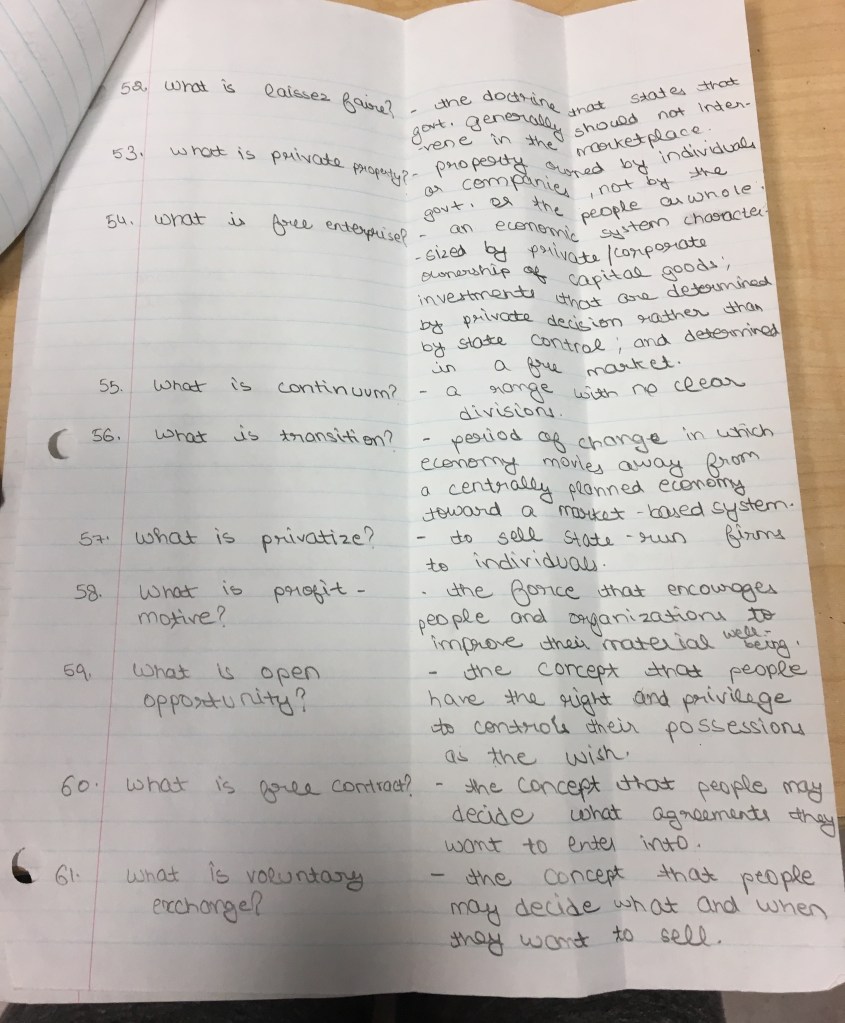 52. what is laissez faire? - the doctrine that states that
govt. generally should not inter-
-vene in the marketplace.
53. what is private property? - property owned by individuals
or companies, not by the
govt. or the people as whole.
54. what is free enterprise? - an economic system character-
-sized by private/corporate
ownership of capital goods;
investments that are determined
by private decision rather than
by state control; and determined
in a free market.
55. what is continuum? - a range with no clear
divisions.
56. what is transition? - period of change in which
economy moves away from
a centrally planned economy
toward a market-based system.
57. what is privatize? - to sell state-run firms
to individuals.
58. what is profit- - the force that encourages
motive? people and organizations to
improve their material well-being.
59. what is open - the concept that people
opportunity? have the right and privilege
to controls their possessions
as the wish.
60. what is free contract? - the concept that people may
decide what agreements they
want to enter into.
61. what is voluntary - the concept that people
exchange? may decide what and when
they want to sell.